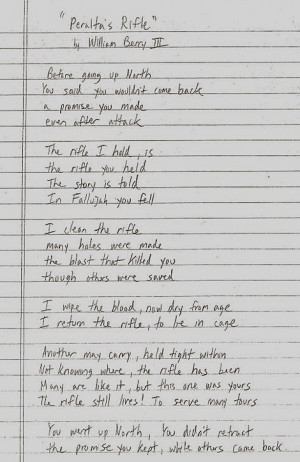 "Peralta's Rifle"
by William Berry III
Before going up North
You said you wouldn't come back
a promise you made
even after attack
The rifle I hold, is
the rifle you held
The story is told
In Fallujah you fell
I clean the rifle
many holes were made
the blast that killed you
though others were saved
I wipe the blood, now dry from age
I return the rifle, to lie in cage
Another may carry, held tight within
Not knowing where, the rifle has been
Many are like it, but this one was yours
The rifle still lives! To serve many tours
You went up North, You didn't retract
the promise you kept, while others came back.